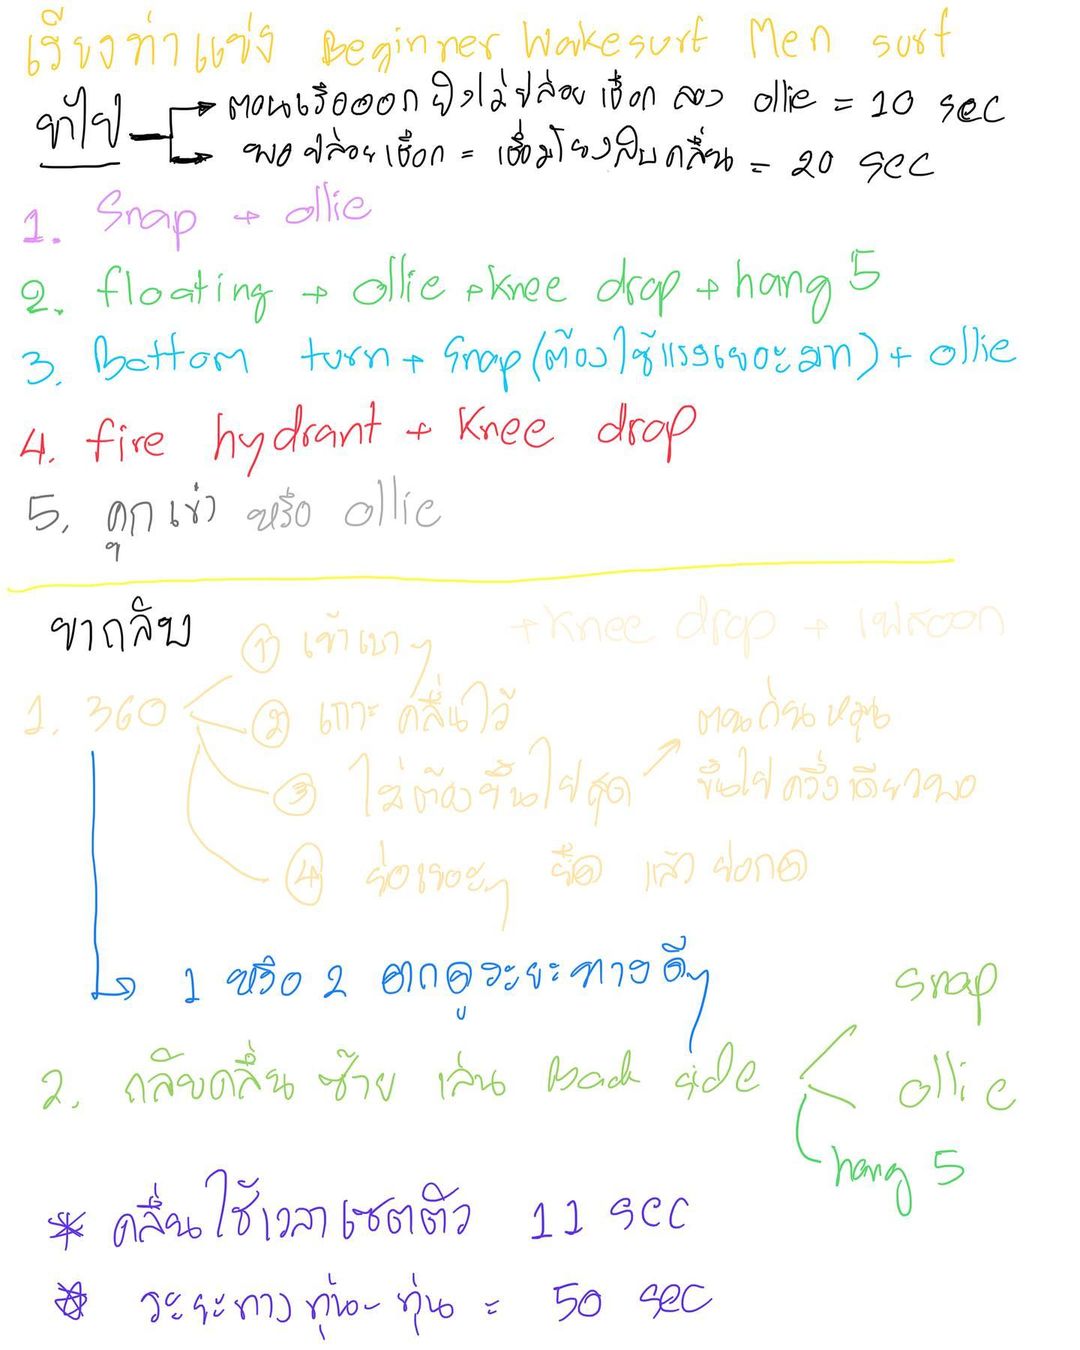 เรียงท่าแข่ง Beginner Wakesurf Men surf
ขาไป
ตอนเรือออก ยังไม่ปล่อยเชือก ลอง ollie = 10 sec
พอปล่อยเชือก = เชื่อมโยงกับคลื่น = 20 sec
1. Snap + ollie
2. floating + ollie + knee drop + hang 5
3. Bottom turn + Snap (ต้องใช้แรงเยอะมาก) + ollie
4. fire hydrant + knee drop
5. คุกเข่า หรือ ollie
ขากลับ
+ knee drop + เฟสออก
1. 360
① เข้าเบาๆ
② เกาะคลื่นไว้
③ ไม่ต้องขึ้นไปสุด
ตอนถึงหมุน
ขึ้นไปครึ่งเดียวพอ
④ ย่อเยอะๆ ยืด แล้ว ย่อกด
1 หรือ 2 ดูระยะทางดีๆ
2. กลับคลื่น ซ้าย เล่น Back side
Snap
ollie
hang 5
* คลื่นใช้เวลาเซตตัว 11 sec
* ระยะทางทุ่น-ทุ่น = 50 sec